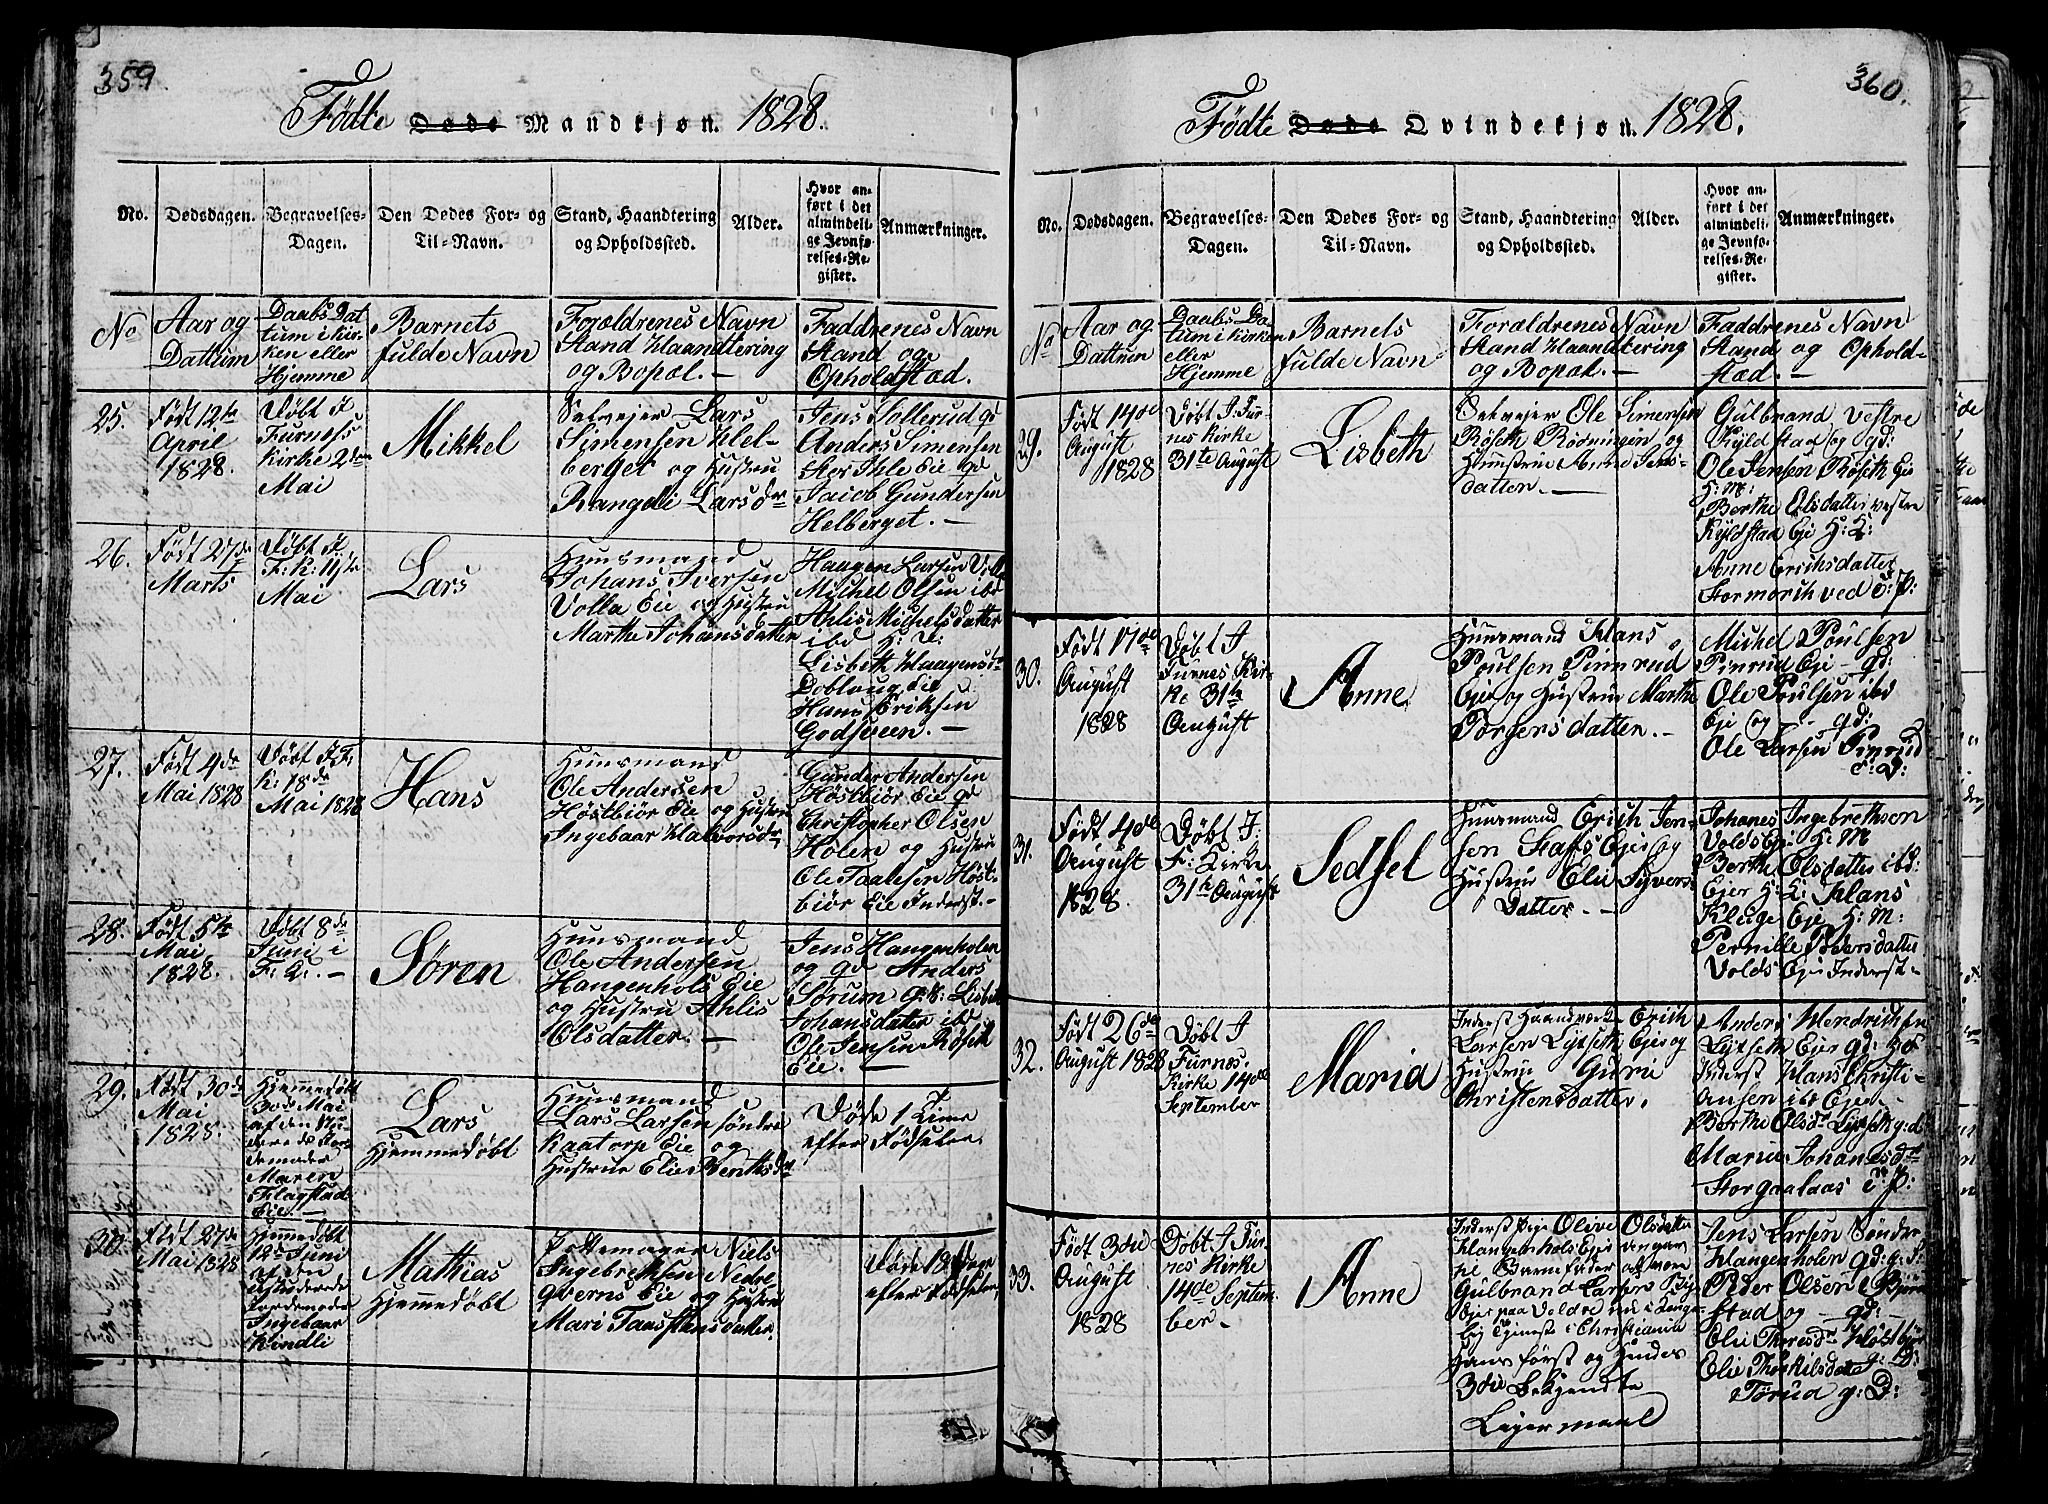 359.
Fødte Døde Mandkjøn. 1828.
No.
Dødsdagen.
Begravelses-
Dagen.
Den Dødes For- og
Til-Navn.
Stand, Haandtering
og Opholdssted.
Alder.
Hvor an-
ført i det
almindeli-
ge Jevnfø-
relses-Re-
gister.
Anmærkninger.
No
Aar og
Dattum
Daabs Dat
tum i kir-
ken eller
Hjemme
Barnets
fulde Navn
Forældrenes Navn
Stand Haandtering
og Bopæl. -
Faddrenes Navn
Stand og
Opholdstæd.
25.
Født 12te
April
1828.
Døbt i
Furness
kirke 2den
Mai
Mikkel
Selvejer Lars
Simensen Hel-
berget og Hustru
Rangdi Larsdr
Jens Sollerud gd
Anders Simensen
Stor Ihle Eie gd
Jacob Gundersen
Helberget. -
26.
Født 27de
Marts
Døbt i
F: K: 11te
Mai
Lars
Huusmand
Johans Iversen
Volla Eie og Hustru
Marthe Johansdatter
Haagen Larsen
Michel Olsen ibd
Ahlis Michelsdatter
ibd H: D:
Lisbeth Haagensd
Doblaug Eie
Hans Eriksen
Godsveen. -
27.
Født 4de
Mai 1828
Døbt i F:
K: 18de
Mai 1828
Hans
Huusmand
Ole Andersen
Høstbiør Eie og Hustru
Ingebaar Halvorsdr
Gunder Andersen
Høstbiør Eie gd
Christopher Olsen
Holen og Hustru
Ole Taalesen Høst-
biør Eie Inderst. -
28.
Født 5te
Mai
1828.
Døbt 8de
Juni i
F: K: -
Søren
Huusmand
Ole Andersen
Hangenhols Eie
og Hustru Ahlis
Olsdatter. -
Jens Hangenholen
og gd Anders
Sørum G: K: Lisbet
Johansdatter ibd
Ole Jensen Røseth
Eie. -
29.
Født 30de
Mai
1828.
Hjemmedøbt
30de Mai
af den
Jordemoder
Maren
Flagstad
Eie. -
Lars
Hjemmedøbt
Huusmand
Lars Larsen søndre
Kaatorp Eie og
Hustrue Elie Berthsdr
Døde 1 Time
efter Fødselen
30.
Født 27de
Mai 1828
Hjemmedøbt
Juni
af den
Jordemoder
Ingebaar
Kindli
Mathias
Hjemmedøbt
Pottemager Niels
Ingebrethsen Nedre
Qverns Eie og Hustru
Mari
Døde
efter Fødselen
360.
Fødte Døde Qvindekjøn. 1828.
No.
Dødsdagen.
Begravelses-
Dagen.
Den Dødes For- og
Til-Navn.
Stand, Haandtering
og Opholdssted.
Alder.
Hvor an-
ført i det
almindeli-
ge Jevnfø-
relses-Re-
gister.
Anmærkninger.
No
Aar og
Dattum
Daabs Da-
tum i kirken
eller
Hjemme
Barnets
fulde Navn
Forældrenes Navn
Stand Haandtering
og Bopæl. -
Faddrenes Navn
Stand og Ophold-
stæd. -
29.
Født 14de
August
1828
Døbt I: Fur-
nes Kirke
31te August
Lisbeth
Selvejer Ole Simensen
Røseth Rødningen og
Hustrue Anne Jens-
datter. -
Gulbrand vestre
Kyldstad og gd:
Ole Jensen Røseth Eje
H: M:
Berthe Olsdatter vestre
Kyldstad Eje H: K:
Anne Erichsdatter
Stormorth ved I: P:
30.
Født 17de
August
1828
Døbt I
Furnes Kir-
ke 31te
August
Anne
Huusmand Hans
Poulsen Pinrud
Ejer og Hustrue Marthe
Torgersdatter. -
Michel Poulsen
Pinrud Eje - gd:
Ole Poulsen ibd
Eje og - gd:
Ole Larsen Pinrud
I: D:
31.
Født 4de
August
1828.
Døbt I:
F: Kirke
31te August
Sedsel
Huusmand Erich Jen-
sen Stafs Ejer og
Hustrue Elie Syvers
Datter. -
Johanes Ingebrethsen
Volds Eje H: M
Berthe Olsdatter ibd:
Ejer H: K: Hans
Kluge Eje H: M:
Pernille Pedersdatter
Volds Eje Inderst -
32.
Født 26de
August 1828
Døbt I
Furnes
Kirke 14de
September
Maria
Inderst Haandværk Erich
Larsen Lysseth Ejer og
Hustrue Gurie
Christensdatter.
Anders Hendrichsen
Lysseth Ejer gd:
Inderst Hans Christi-
ansen ibd Eje -
Berthe Olsdr Lysseth gd
Marie Johanesdr
Storgaalaas I: P:
33.
Født 3die
August
1828
Døbt I Fur-
nes Kirke
14de Septem-
ber -
Anne
Inderst Pige Olive Olsdatter
Hangenhols Ejer
Barnefader
Gulbrand Larsen
Ejer paa Voldre
Tjeneste i Christiania
Hans først og Hendes
3die Bekjendte
Lejermaal
Jens Larsen Søndre
Hangenholen gd: g: I:
Peder Olsen
stad og - gd:
Elie Thoresdr Høstbjør
Elie Thorkilsdatter I: D:
Torud g: D: